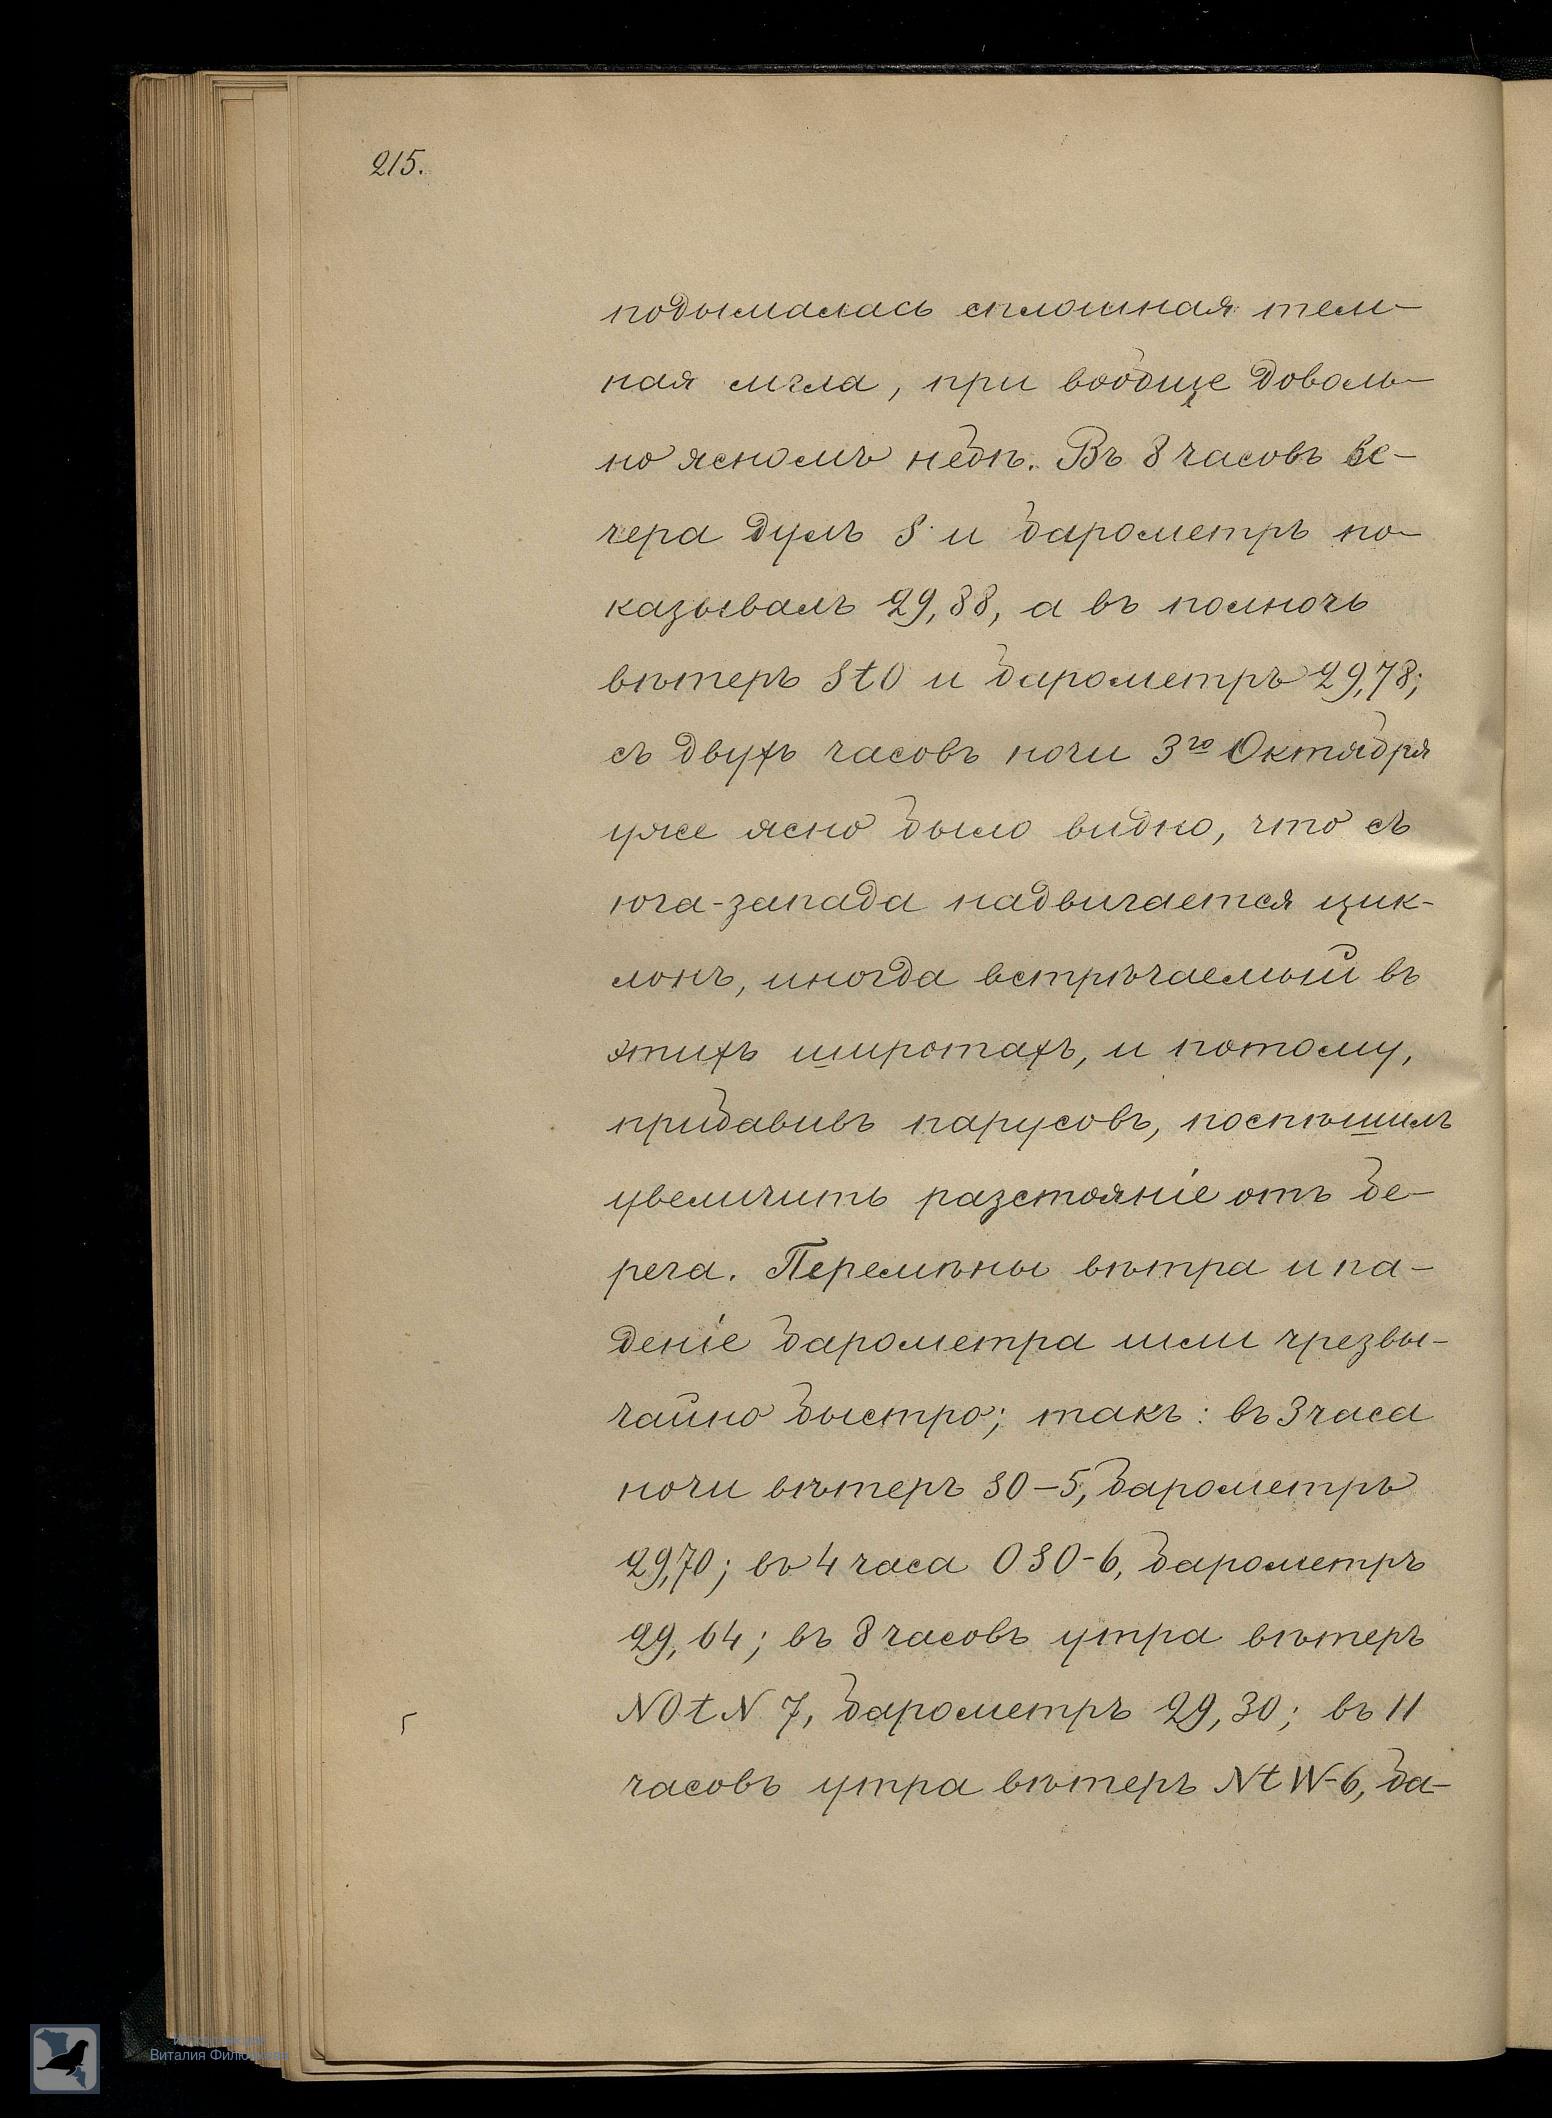 215.
подымалась сплошная тем-
ная мгла, при вообще доволь-
но ясномъ небѣ. Въ 8 часовъ ве-
чера дулъ S и барометръ по-
казывалъ 29,88, а въ полночь
вѣтеръ StO и барометръ 29,78;
съ двухъ часовъ ночи 3го Октября
уже ясно было видно, что съ
юга-запада надвигается цик-
лонъ, иногда встрѣчаемый въ
этихъ широтахъ, и потому,
прибавивъ парусовъ, поспѣшилъ
увеличить разстояніе отъ бе-
рега. Перемѣны вѣтра и па-
деніе барометра шли чрезвы-
чайно быстро; такъ: въ 3 часа
ночи вѣтеръ SO-5, барометръ
29,70; въ 4 часа OSO-6, барометръ
29,64; въ 8 часовъ утра вѣтеръ
NOtN 7, барометръ 29,30; въ 11
часовъ утра вѣтеръ NtW-6, ба-
Виталия